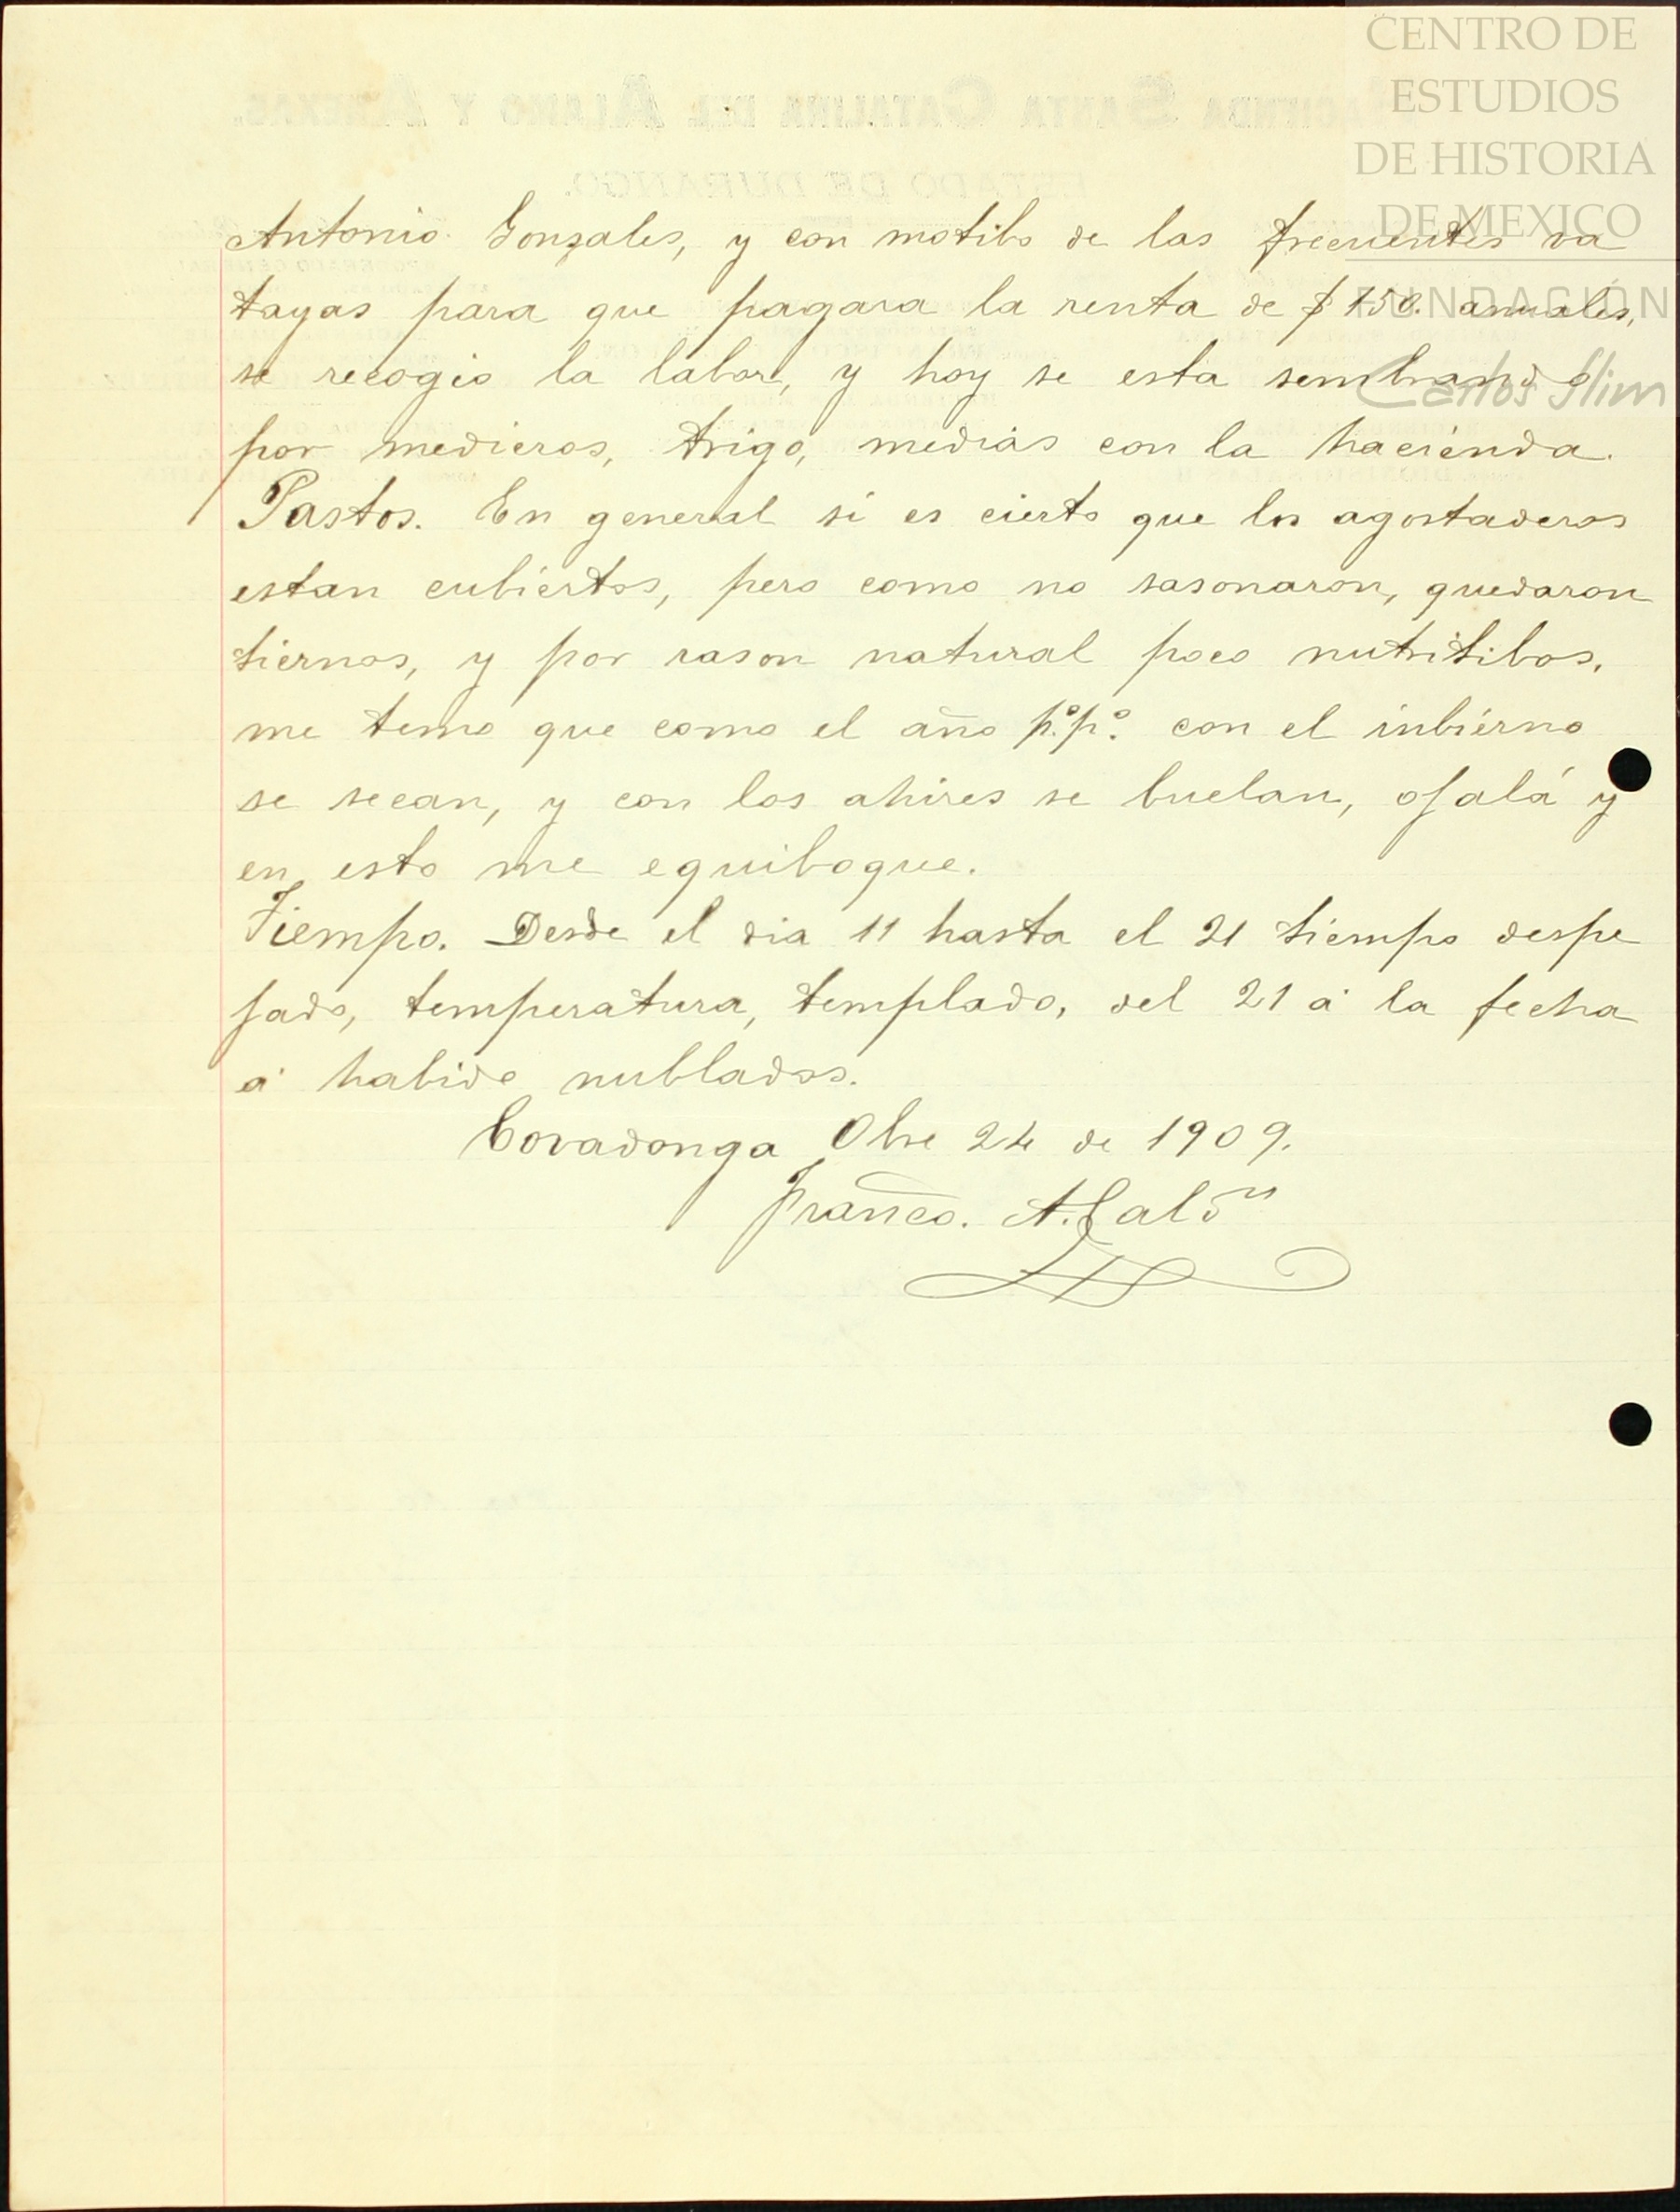 CENTRO DE
ESTUDIOS
DE HISTORIA
DE MEXICO
FUNDACIÓN
Carlos Slim
HACIENDA SANTA CATALINA DEL ALAMO Y ANEXAS.
ESTADO DE DURANGO.
Antonio Gonzales, y con motibo de las frecuentes va
tayas para que pagara la renta de $150. anuales,
se recogio la labor, y hoy se esta sembrando
por medieros, trigo, medias con la hacienda.
Pastos. En general si es cierto que los agostaderos
estan cubiertos, pero como no sasonaron, quedaron
tiernos, y por rason natural poco nutritibos,
me temo que como el año p.º p.º con el inbierno
se secan, y con los ahires se buelan, ojalá y
en esto me equiboque.
Tiempo. Desde el dia 11 hasta el 21 tiempo despe
jado, temperatura, templado, del 21 á la fecha
á habido nublados.
Covadonga Obre 24 de 1909.
Franco. A.